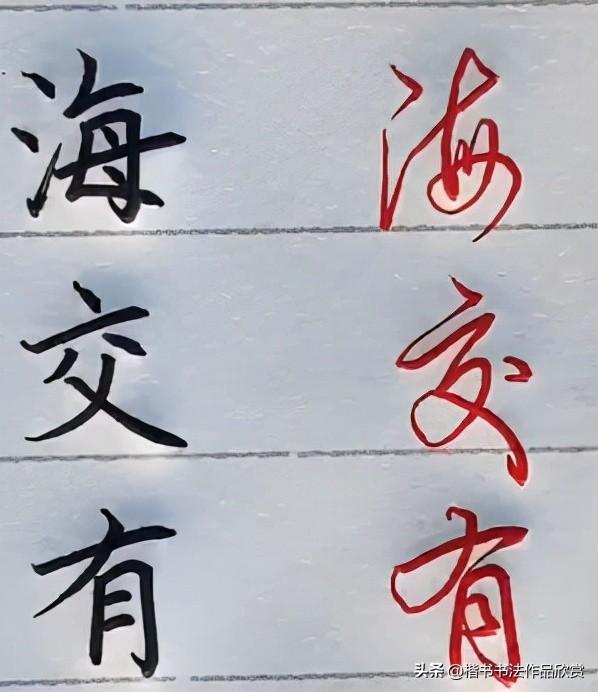 海 海
交 交
有 有
头条 @楷书书法作品欣赏